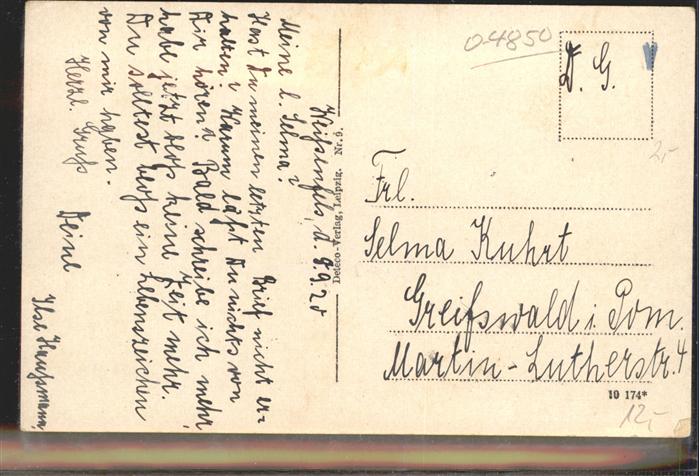 Weißenfels, d. 9.9.20
Meine l. Selma!
Hast Du meinen letzten Brief nicht er-
halten? Warum läßt Du nichts von
Dir hören? Bald schreibe ich mehr,
habe jetzt bloß keine Zeit mehr.
Du solltest bloß ein Lebenszeichen
von mir haben.
Herzl. Gruß
Deine
Ilse
Deteco-Verlag, Leipzig. Nr. 9.
04850
D. G.
2,-
Frl.
Selma Kuhrt
Greifswald i. Pom.
Martin-Lutherstr. 4
19 174*
12,-